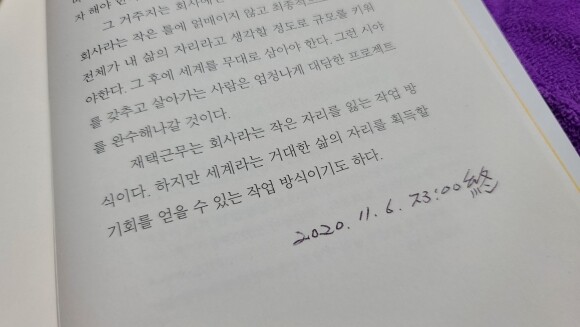 자 래야
그 거주지는 회사에
회사라는 작은 틀에 얽매이지 않고 최종적으
전체가 내 삶의 자리라고 생각할 정도로 규모를 키워
야한다. 그 후에 세계를 무대로 삼아야 한다. 그런 시야
를 갖추고 살아가는 사람은 엄청나게 대담한 프로젝트
를 완수해나갈 것이다.
재택근무는 회사라는 작은 자리를 잃는 작업 방
식이다. 하지만 세계라는 거대한 삶의 자리를 획득할
기회를 얻을 수 있는 작업 방식이기도 하다.
2020. 11. 6. 23:00 終